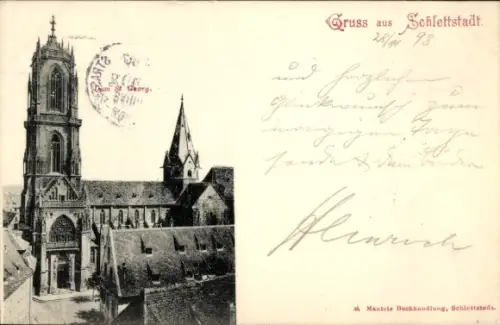 Gruss aus Schlettstadt.
98
St. Georg.
und herzlichen
Glückwunsch zum
morgigen Tage
sendet
Heinrich
Mantels Buchhandlung, Schlettstadt.